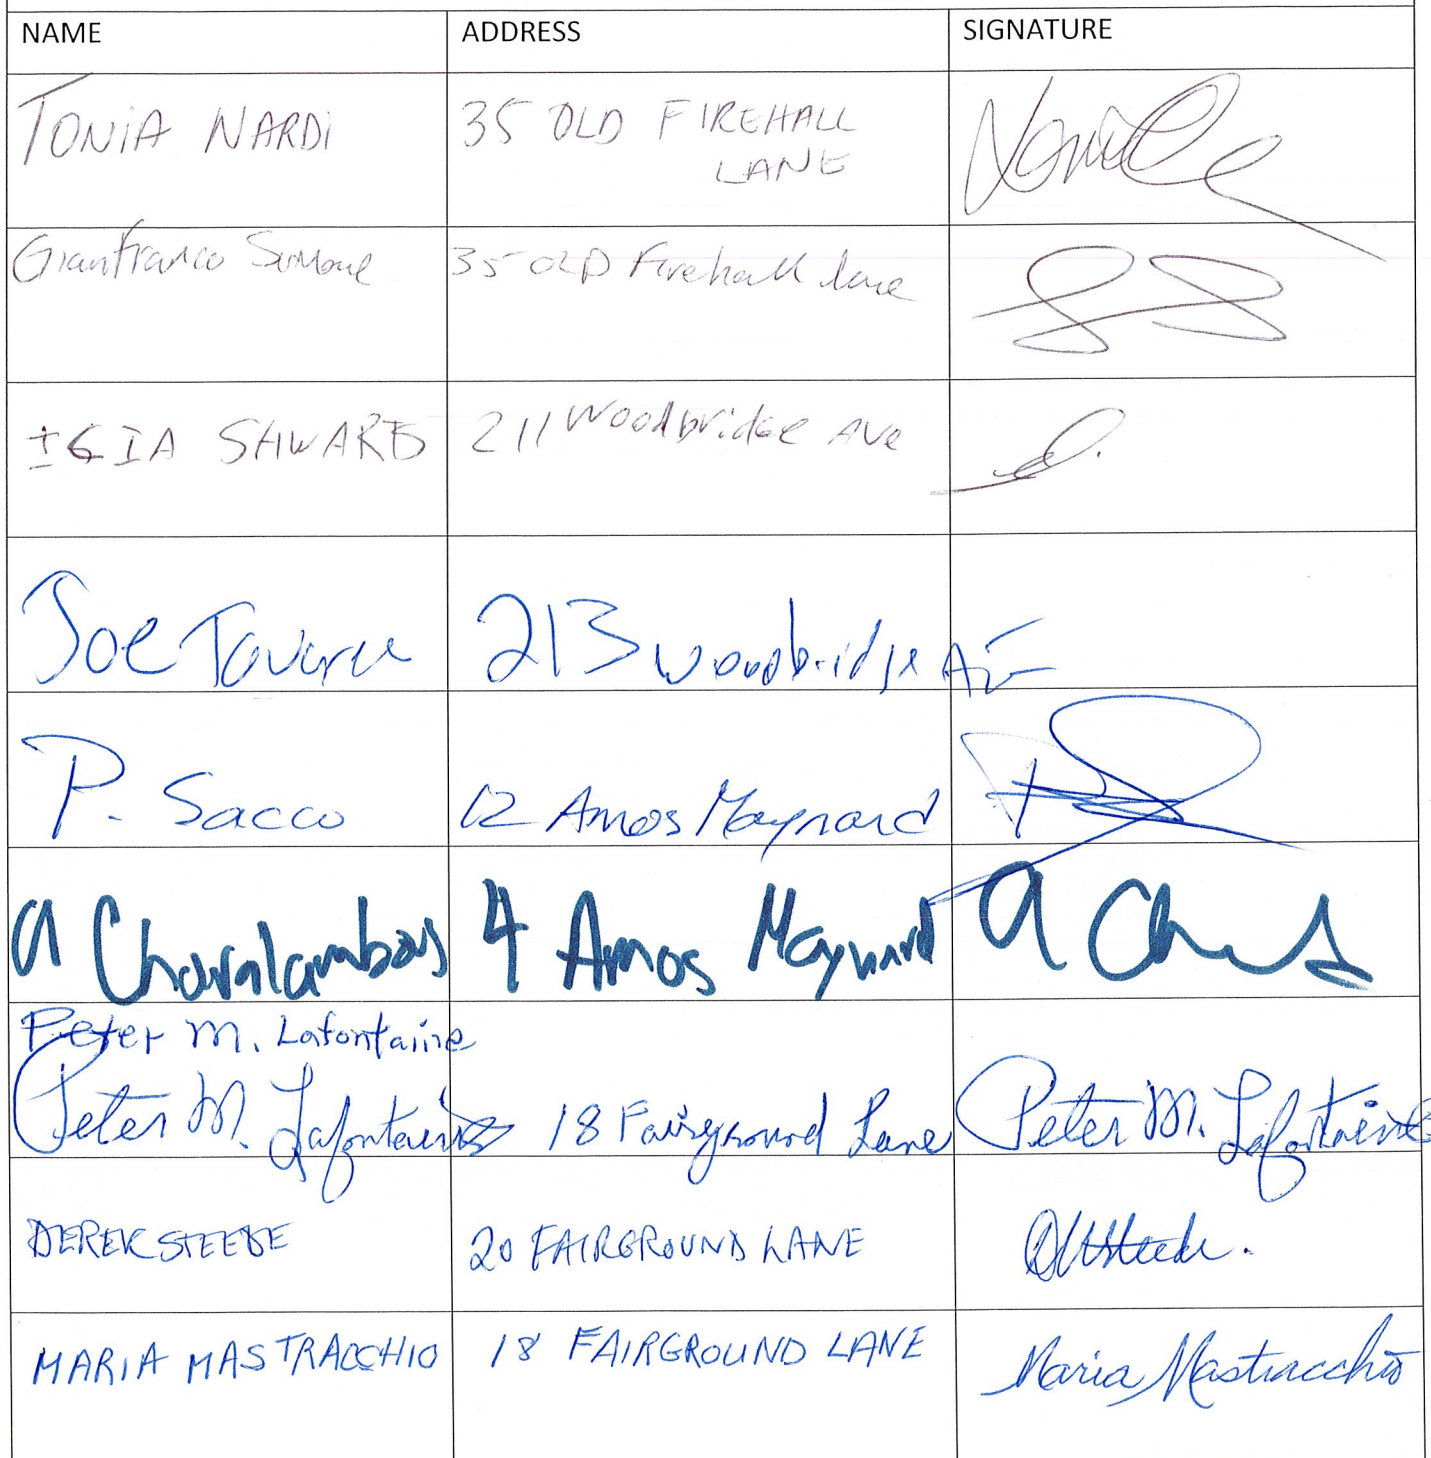 NAME ADDRESS SIGNATURE
TONIA NARDI 35 OLD FIREHALL
LANE
Gianfranco Simone 35 OLD Firehall lane
SHWARTS 211 Woodbridge Ave
Joe 213 Woodbridge Ave
P. Sacco 12 Amos Maynard
A Charalambous 4 Amos Maynard
Peter M. Lafontaine
Peter M. Lafontaine 18 Fairground Lane Peter M. Lafontaine
DEREK STEEDE 20 FAIRGROUND LANE
MARIA MASTRACCHIO 18 FAIRGROUND LANE Maria Mastracchio